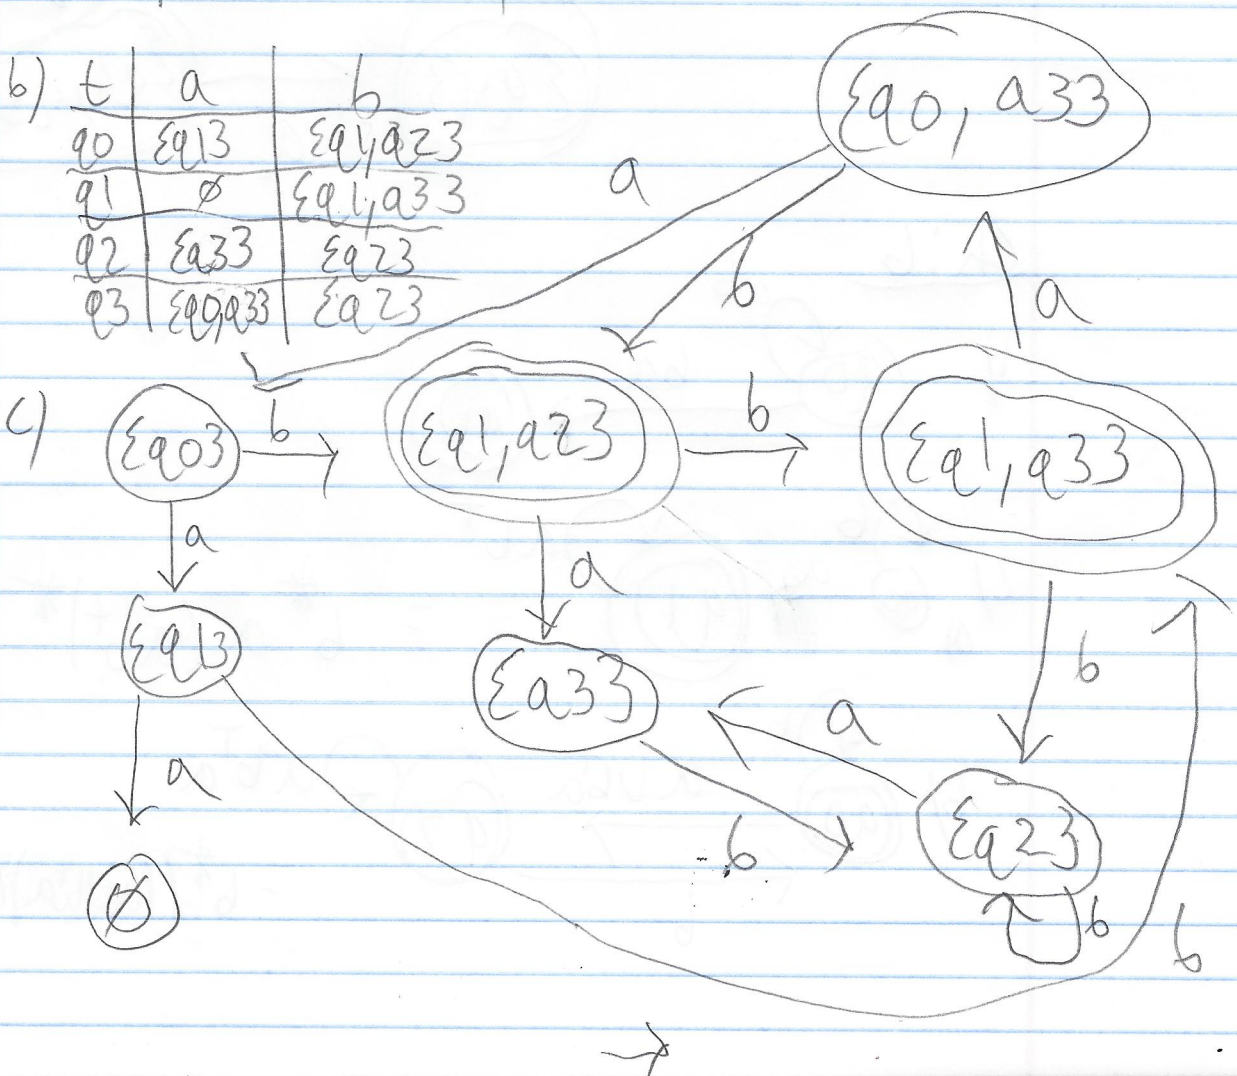 b) t a b
q0 {q1} {q1,q2}
q1 ∅ {q1,q3}
q2 {q3} {q2}
q3 {q0,q3} {q2}
{q0, q3}
a
b
a
c) {q0} b {q1,q2} b {q1,q3}
a
a
b
{q1} {q3}
a
a
b
{q2}
∅
b
b